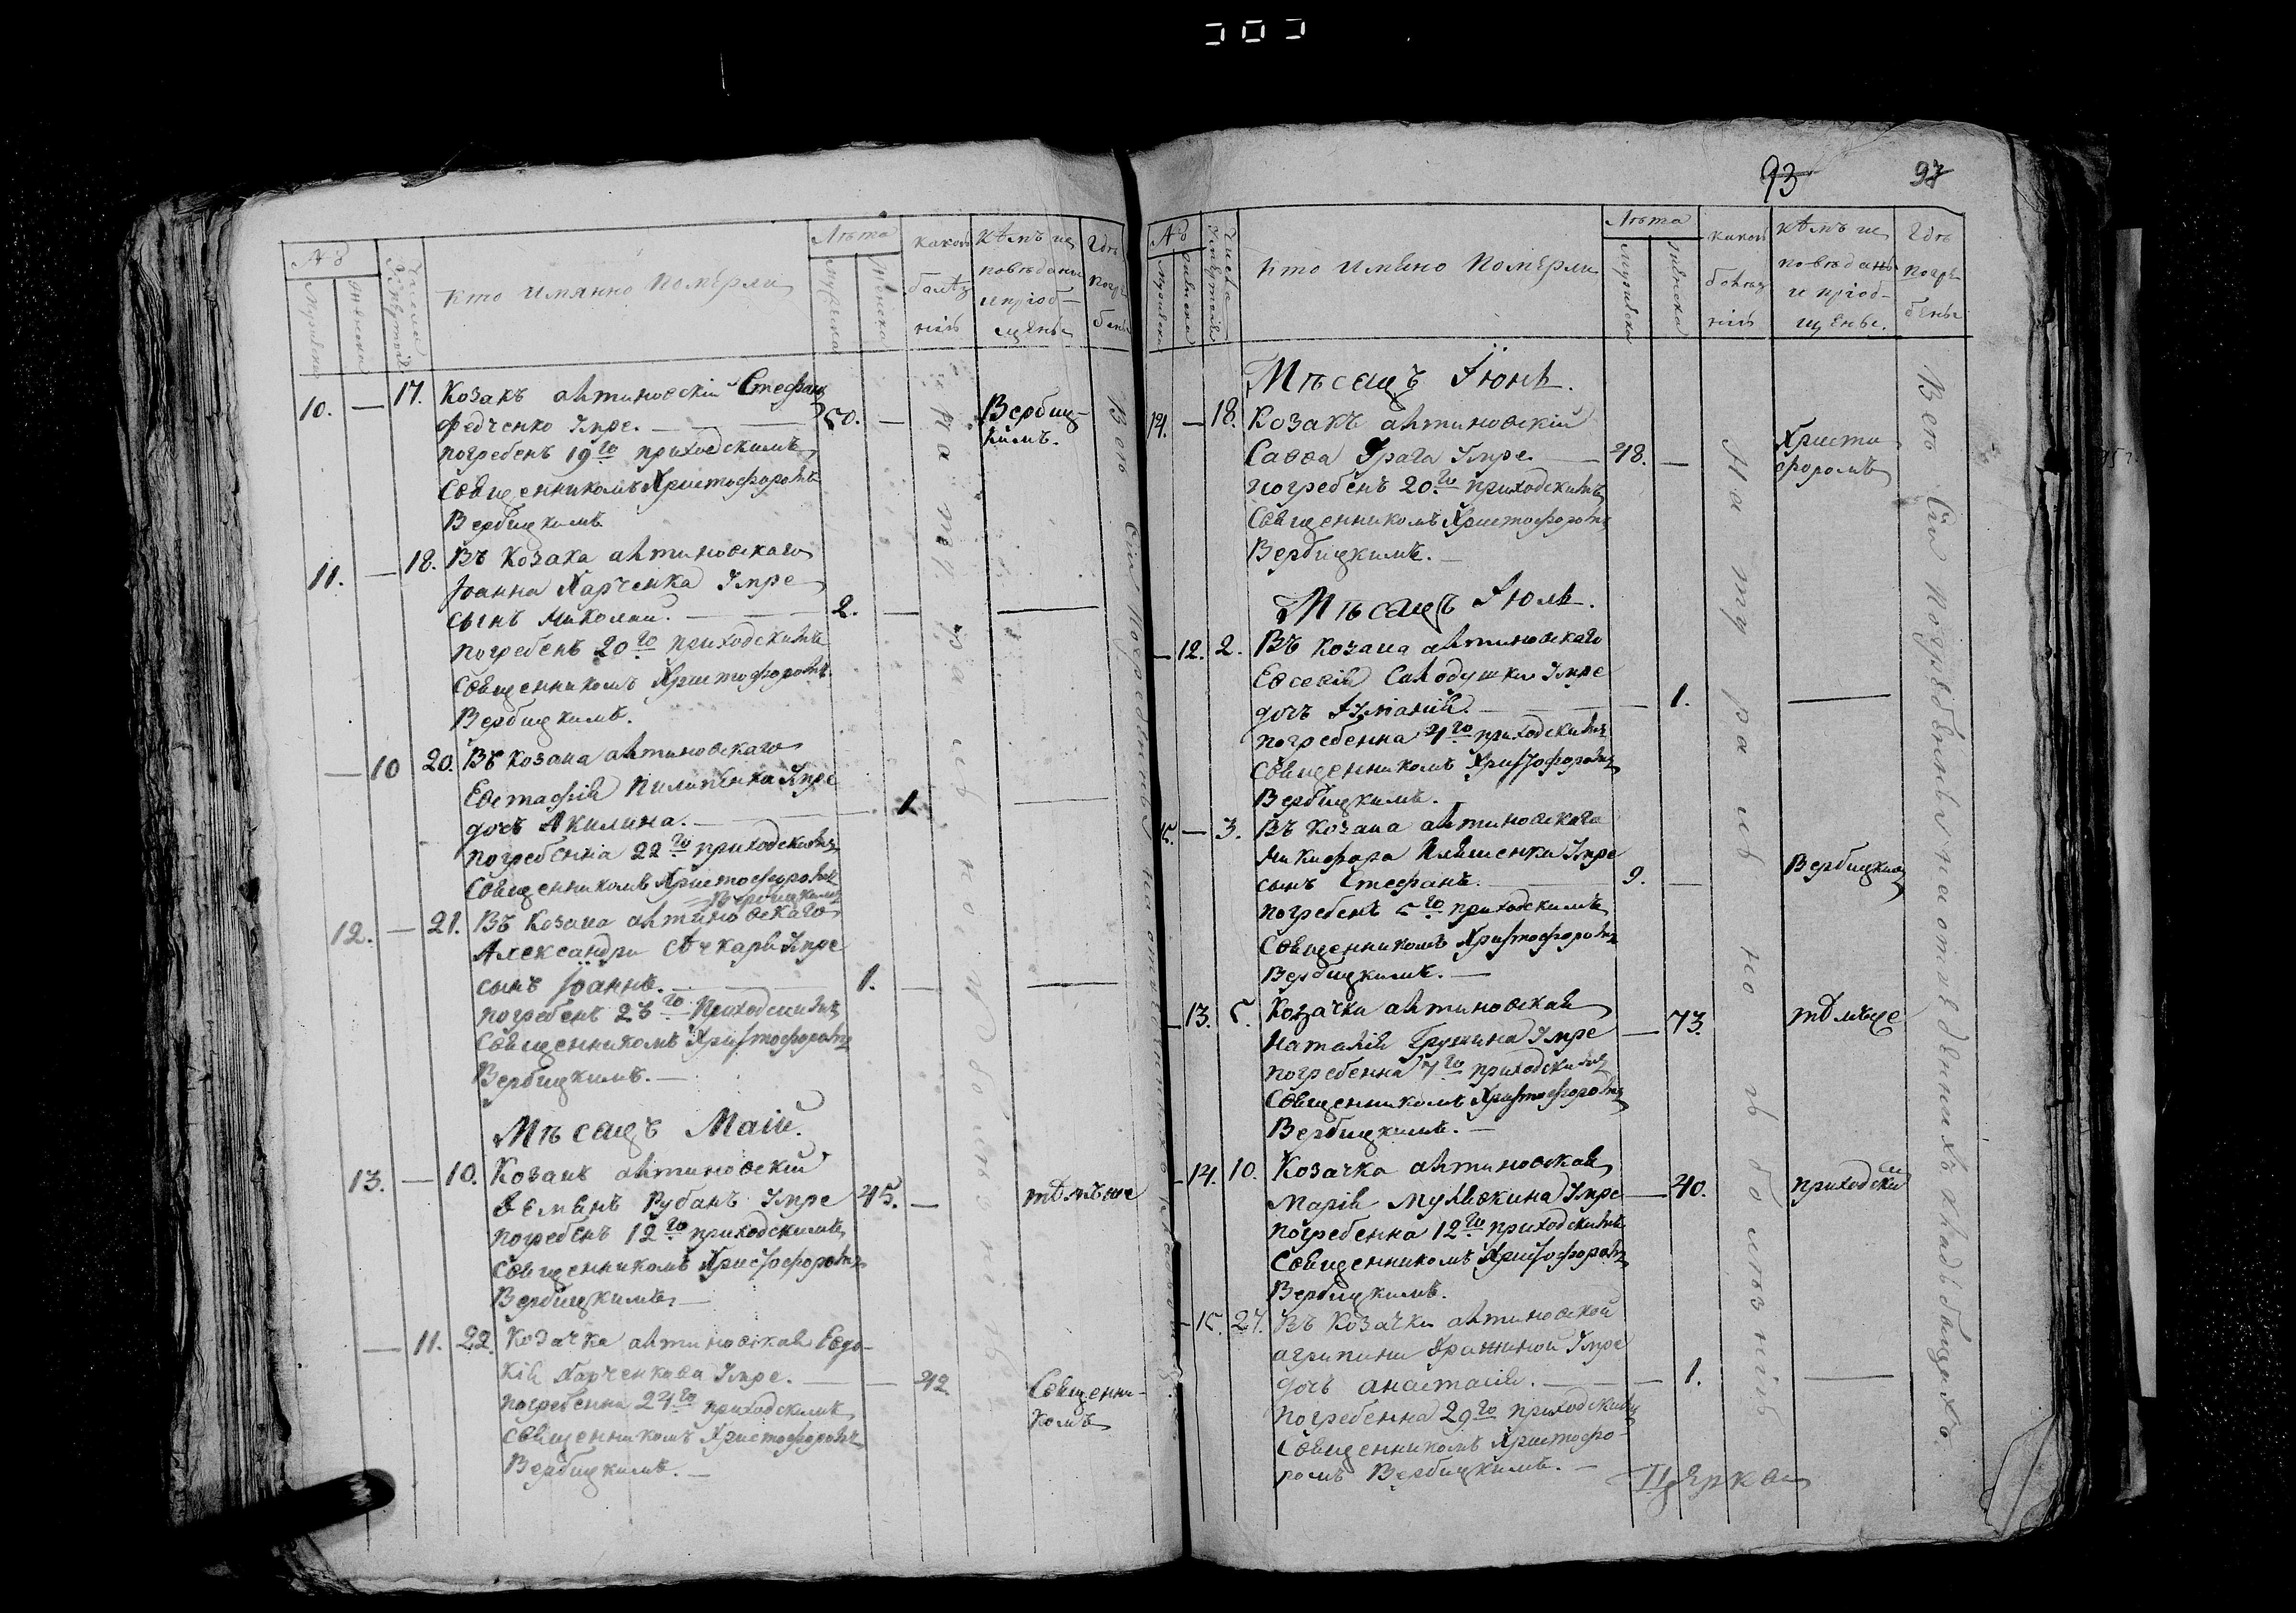 303
№
Мужеска
Женска
Числа
Кто имянно померли
Лѣта
Мужеска
Женска
какой
болѣз
нію
кѣмъ ис
повѣданы
и пріоб-
щены
Гдѣ
погре
бены
10. — 17. Козакъ актиновскій Стефанъ
Федченко Умре. — 50. — Вербиц-
кимъ.
погребенъ 19го приходскимъ
Священникомъ Христофоромъ
Вербицкимъ
11. — 18. Въ Козака актиновскаго
Іоанна Харченка Умре
сынъ Николай. — 2. — —
погребенъ 20го приходскимъ
Священникомъ Христофоромъ
Вербицкимъ.
— 10 20. Въ козака актиновскаго
Евстафія Пилипенка Умре
дочь Акилина. — — 1. —
погребенна 22го приходскимъ
Священникомъ Христофоромъ
Вербицкимъ
12. — 21. Въ Козака актиновскаго
Александри Умре
сынъ Іоаннъ. — 1. — —
погребенъ 23го Приходскимъ
Священникомъ Христофоромъ
Вербицкимъ. —
Мѣсяцъ Маій.
13. — 10. Козакъ актиновскій
Рубанъ Умре 45. — тѣмъже
погребенъ 12го приходскимъ
Священникомъ Христофоромъ
Вербицкимъ. —
— 11. 22. Козачка актиновская Евдо-
кія Харченкова Умре. — — 42
погребенна 24го приходскимъ
Священни-
комъ
Священникомъ Христофоромъ
Вербицкимъ. —
Натуральною болѣзнію
93
93
№
Мужеска
Женска
Числа
Кто имѧнно Померли
Лѣта
Мужеска
Женска
какой
болѣз
нію
кѣмъ ис
повѣданы
и пріоб-
щены.
Гдѣ
погре
бены
Мѣсяцъ Іюнь.
14. — 18. Козакъ актиновскій
Савва Умре — 48. — Христо
форомъ
погребенъ 20го приходскимъ
Священникомъ Христофоромъ
Вербицкимъ. —
Мѣсяцъ Іюль.
— 12. 2. Въ козака актиновскаго
Евсевія Умре
дочь — — 1. —
погребенна 4го приходскимъ
Священникомъ Христофоромъ
Вербицкимъ.
15. — 3. Въ Козака актиновскаго
Никифора Умре
сынъ Стефанъ. — 9. — Вербицкимъ
погребенъ 5го приходскимъ
Священникомъ Христофоромъ
Вербицкимъ. —
— 13. 5. Козачка актиновская
Наталія Умре — 73. тѣмъже
погребенна 7го приходскимъ
Священникомъ Христофоромъ
Вербицкимъ. —
— 14. 10. Козачка актиновская
Марія Умре — 40. приходски
погребенна 12го приходскимъ
Священникомъ Христофоромъ
Вербицкимъ.
— 15. 27. Въ Козачки актиновской
агрипини Умре
дочь анастасія. — — 1. —
погребенна 29го приходскимъ
Священникомъ Христофо-
ромъ Вербицкимъ. —
Натуральною болѣзнію
Всѣ Сіи погребенны на отведенныхъ кладбищахъ.
Церкви